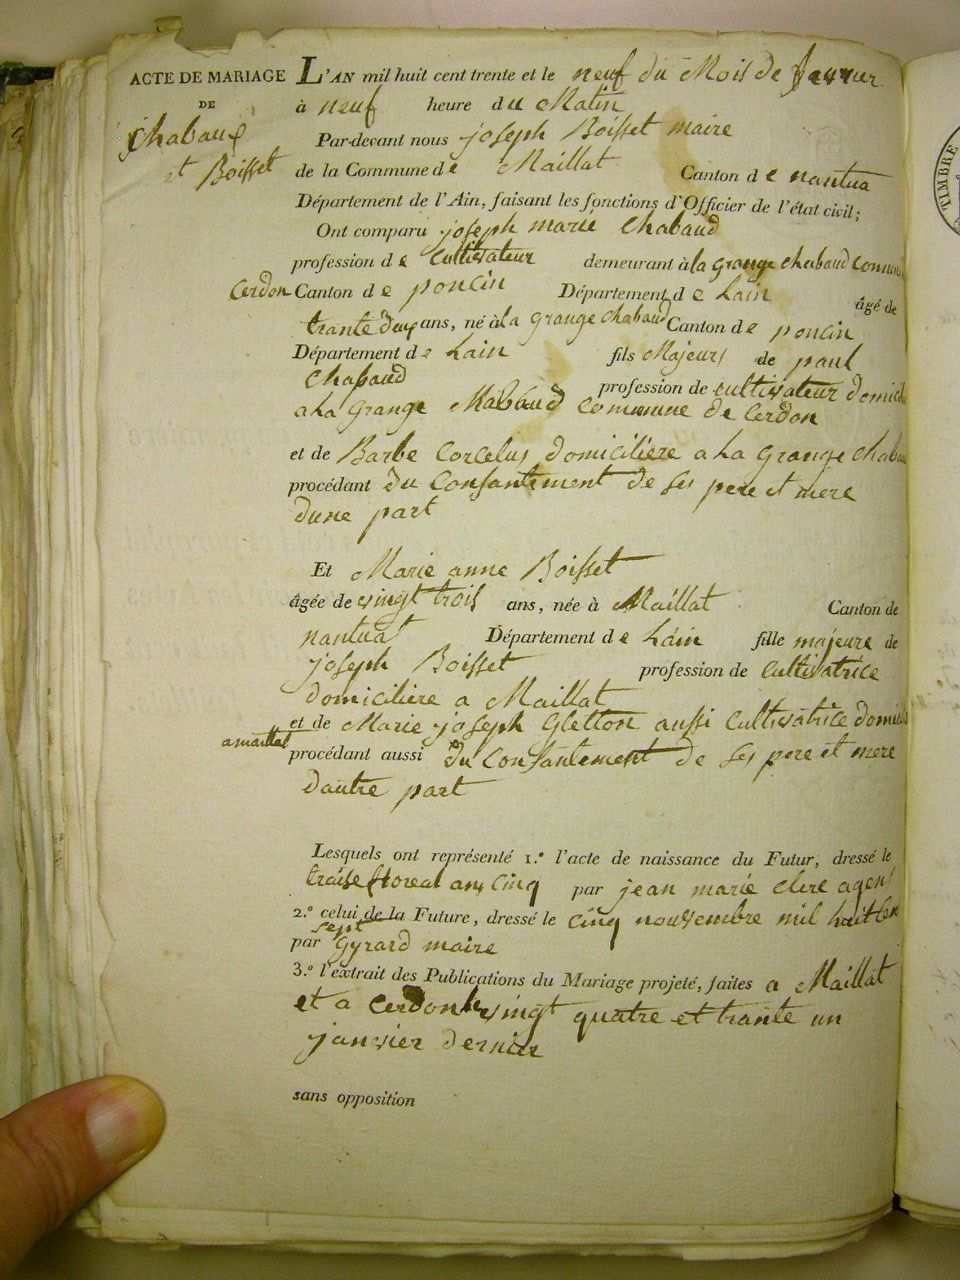 ACTE DE MARIAGE
DE
Chabaux
et Boisset
L'AN mil huit cent trente et le neuf du Mois de
à neuf heure du Matin
Par-devant nous joseph Boisset maire
de la Commune de Maillat Canton de nantua
Département de l'Ain, faisant les fonctions d'Officier de l'état civil;
Ont comparu joseph marie Chabaud
profession de Cultivateur demeurant à la grange chabaud Commun
Cerdon Canton de poncin Département de Lain âgé de
trante deux ans, né à la grange chabaud Canton de poncin
Département de Lain fils Majeurs de paul
Chabaud profession de cultivateur domicil
a La grange Chabaud Commune de Cerdon
et de Barbe Corcelus domiciliere a La grange chabau
procédant du Consantement de ses pere et mere
dune part
Et Marie anne Boisset
âgée de vingt trois ans, née à Maillat Canton de
nantuat Département de Lain fille majeure de
joseph Boisset profession de Cultivatrice
domiciliere a Maillat
et de Marie joseph Gletton aussi Cultivatrice domicil
amaillat procédant aussi du Consantement de ses pere et mere
dautre part
Lesquels ont représenté 1.° l'acte de naissance du Futur, dressé le
traise floreal ans Cinq par jean marie clere agent
2.° celui de la Future, dressé le Cinq nouvembre mil huit Cen
sept
par Gyrard maire
3.° l'extrait des Publications du Mariage projeté, faites a Maillat
et a Cerdon le vingt quatre et trante un
janvier dernier
sans opposition
TIMBRE